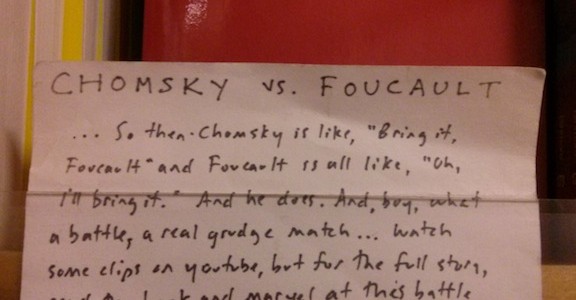 CHOMSKY vs. FOUCAULT
... So then Chomsky is like, "Bring it,
Foucault" and Foucault is all like, "Oh,
I'll bring it." And he does. And, boy, what
a battle, a real grudge match... Watch
some clips on youtube, but for the full story,
and marvel at this battle